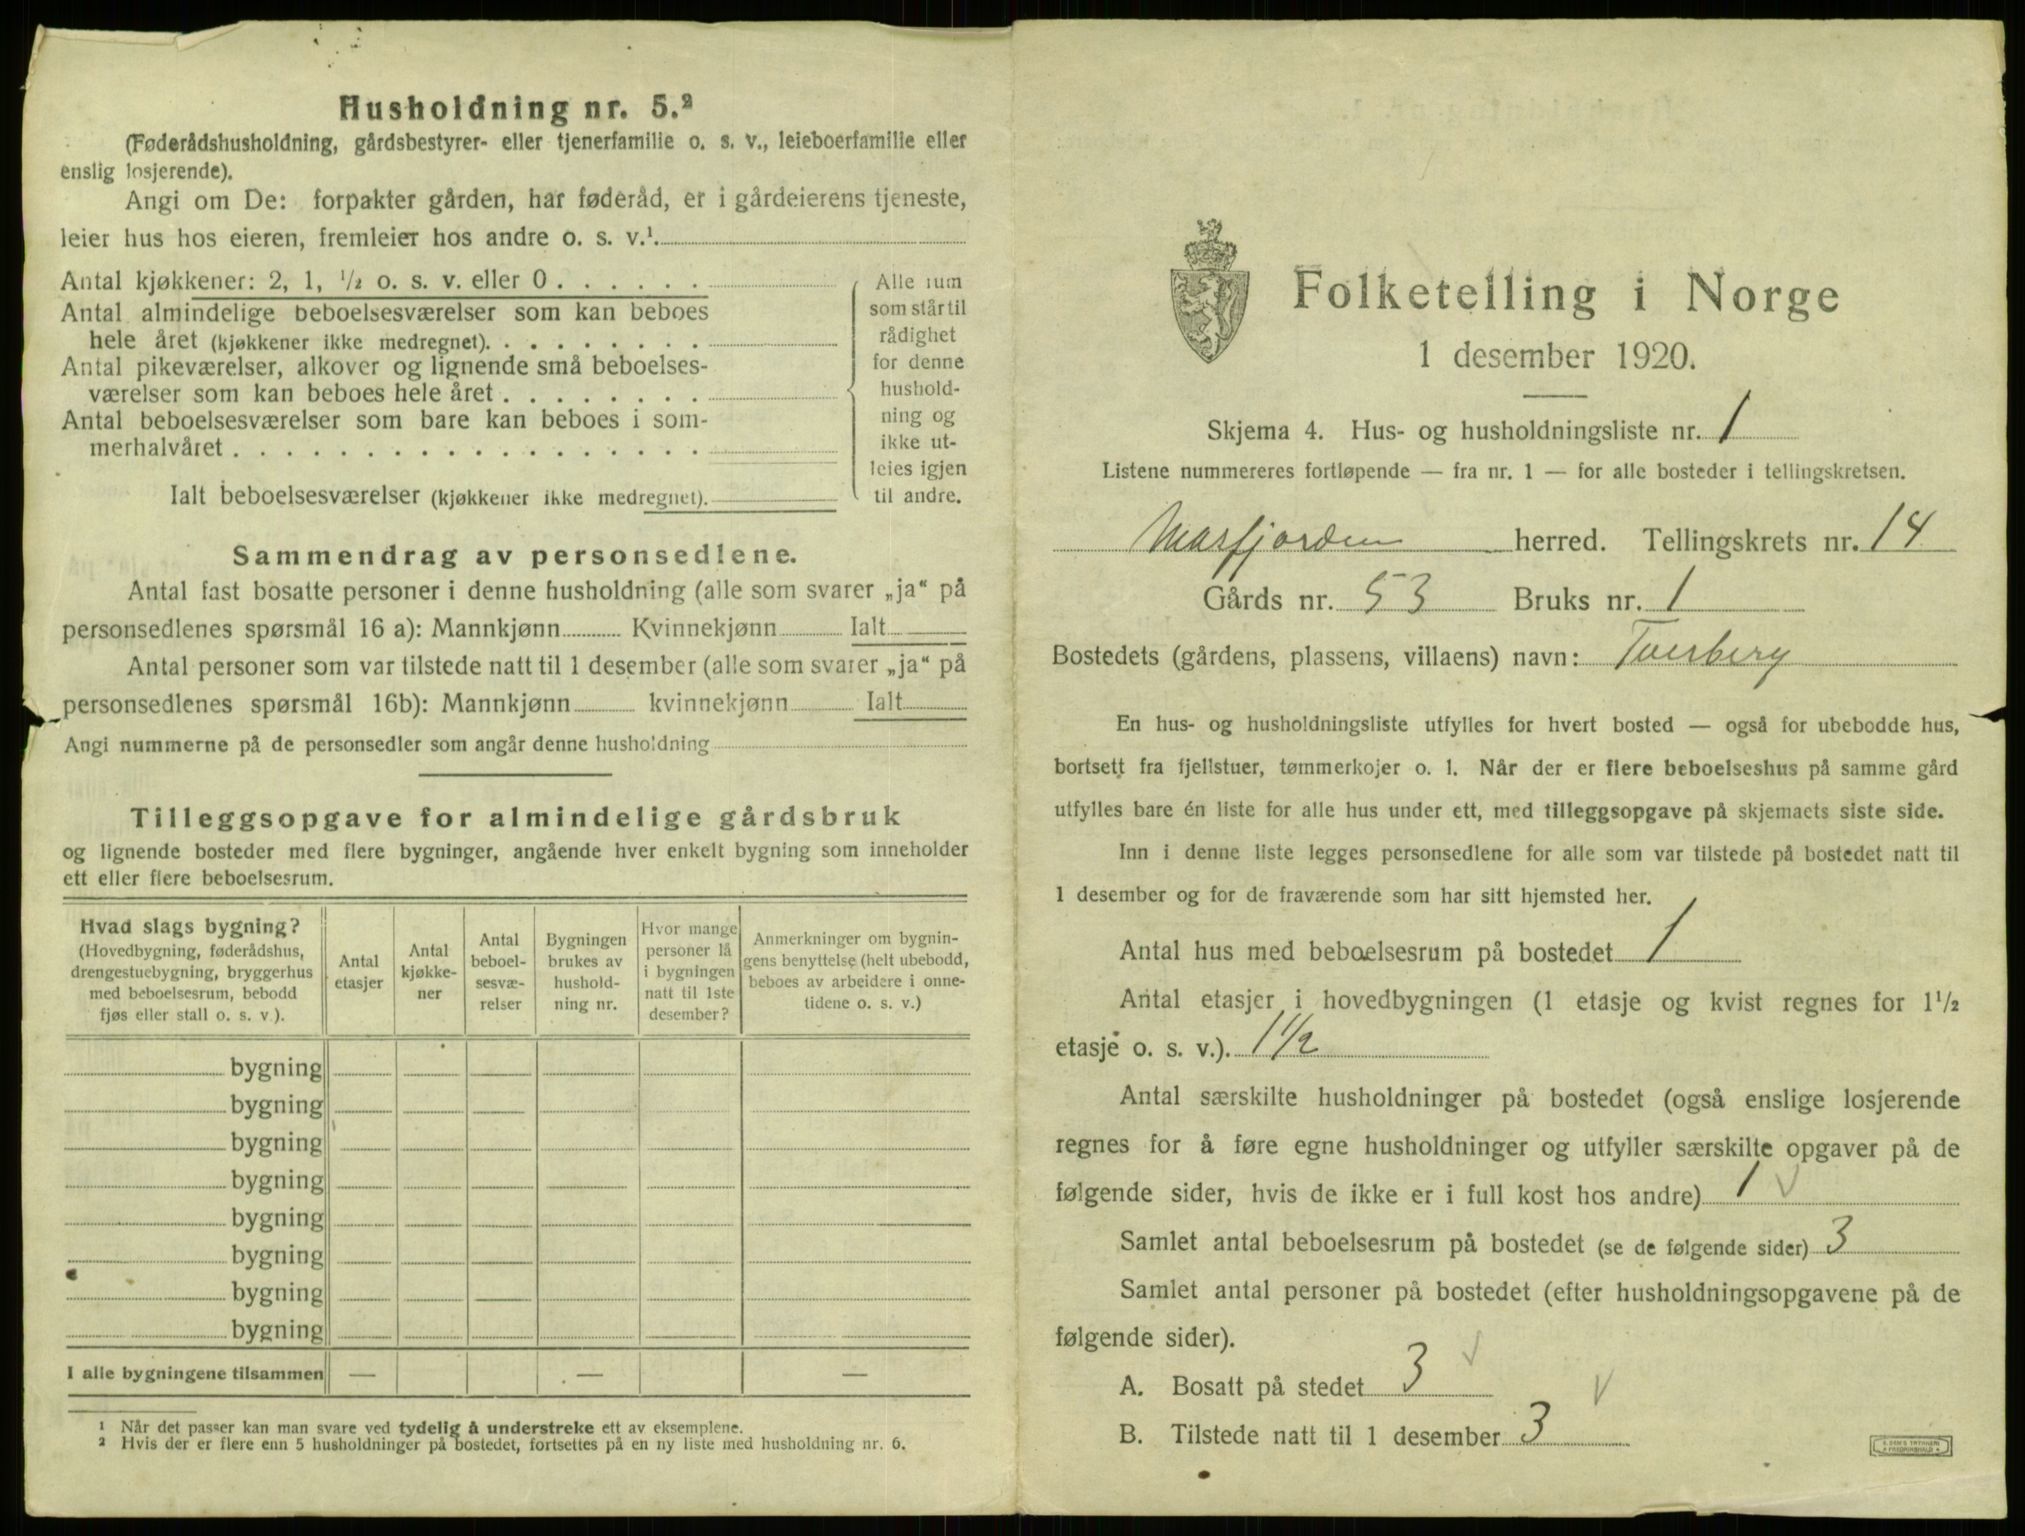 Husholdning nr. 5.²
(Føderådshusholdning, gårdsbestyrer- eller tjenerfamilie o. s. v., leieboerfamilie eller
enslig losjerende).
Angi om De: forpakter gården, har føderåd, er i gårdeierens tjeneste,
leier hus hos eieren, fremleier hos andre o. s. v.¹
Antal kjøkkener: 2, 1, ½ o. s. v. eller 0 . . . . . .
Antal almindelige beboelsesværelser som kan beboes
hele året (kjøkkener ikke medregnet). . . . . . . . .
Antal pikeværelser, alkover og lignende små beboelses-
værelser som kan beboes hele året . . . . . . . .
Antal beboelsesværelser som bare kan beboes i som-
merhalvåret . . . . . . . . . . . . . . . . . .
Ialt beboelsesværelser (kjøkkener ikke medregnet).
Alle rum
som står til
rådighet
for denne
hushold-
ning og
ikke ut-
leies igjen
til andre.
Sammendrag av personsedlene.
Antal fast bosatte personer i denne husholdning (alle som svarer „ja“ på
personsedlenes spørsmål 16 a): Mannkjønn Kvinnekjønn Ialt
Antal personer som var tilstede natt til 1 desember (alle som svarer „ja“ på
personsedlenes spørsmål 16b): Mannkjønn kvinnekjønn Ialt
Angi nummerne på de personsedler som angår denne husholdning
Tilleggsopgave for almindelige gårdsbruk
og lignende bosteder med flere bygninger, angående hver enkelt bygning som inneholder
ett eller flere beboelsesrum.
Hvad slags bygning?
(Hovedbygning, føderådshus,
drengestuebygning, bryggerhus
med beboelsesrum, bebodd
fjøs eller stall o. s. v.).
Antal
etasjer
Antal
kjøkke-
ner
Antal
beboel-
sesvæ-
relser
Bygningen
brukes av
hushold-
ning nr.
Hvor mange
personer lå
i bygningen
natt til 1ste
desember?
Anmerkninger om bygnin-
gens benyttelse (helt ubebodd,
beboes av arbeidere i onne-
tidene o. s. v.)
bygning
bygning
bygning
bygning
bygning
bygning
bygning
bygning
I alle bygningene tilsammen — — —
¹ Når det passer kan man svare ved tydelig å understreke ett av eksemplene.
² Hvis der er flere enn 5 husholdninger på bostedet, fortsettes på en ny liste med husholdning nr. 6.
Folketelling i Norge
1 desember 1920.
Skjema 4. Hus- og husholdningsliste nr. 1
Listene nummereres fortløpende — fra nr. 1 — for alle bosteder i tellingskretsen.
Masfjorden herred. Tellingskrets nr. 14
Gårds nr. 53 Bruks nr. 1
Bostedets (gårdens, plassens, villaens) navn: Tverberg
En hus- og husholdningsliste utfylles for hvert bosted — også for ubebodde hus,
bortsett fra fjellstuer, tømmerkojer o. l. Når der er flere beboelseshus på samme gård
utfylles bare én liste for alle hus under ett, med tilleggsopgave på skjemaets siste side.
Inn i denne liste legges personsedlene for alle som var tilstede på bostedet natt til
1 desember og for de fraværende som har sitt hjemsted her.
Antal hus med beboelsesrum på bostedet 1
Antal etasjer i hovedbygningen (1 etasje og kvist regnes for 1½
etasje o. s. v.). 1½
Antal særskilte husholdninger på bostedet (også enslige losjerende
regnes for å føre egne husholdninger og utfyller særskilte opgaver på de
følgende sider, hvis de ikke er i full kost hos andre) 1 ✓
Samlet antal beboelsesrum på bostedet (se de følgende sider) 3
Samlet antal personer på bostedet (efter husholdningsopgavene på de
følgende sider).
A. Bosatt på stedet 3 ✓
B. Tilstede natt til 1 desember 3 ✓